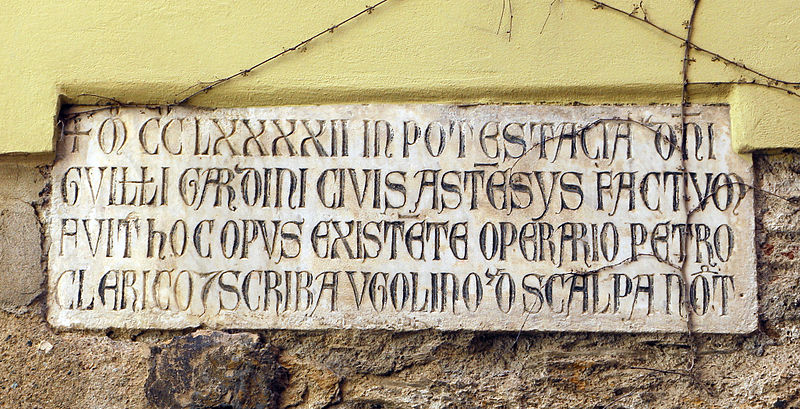 + M̅ C̅C̅ LXXXXII IN POTESTACIA D̅N̅I
GVILLI GARDINI CIVIS ASTE̅SYS FACTVM
AVIT HOC OPVS EXISTE̅TE OPERARIO PETRO
CLERICO 7 SCRIBA VGOLINO D̅ SCALPA NOT̅